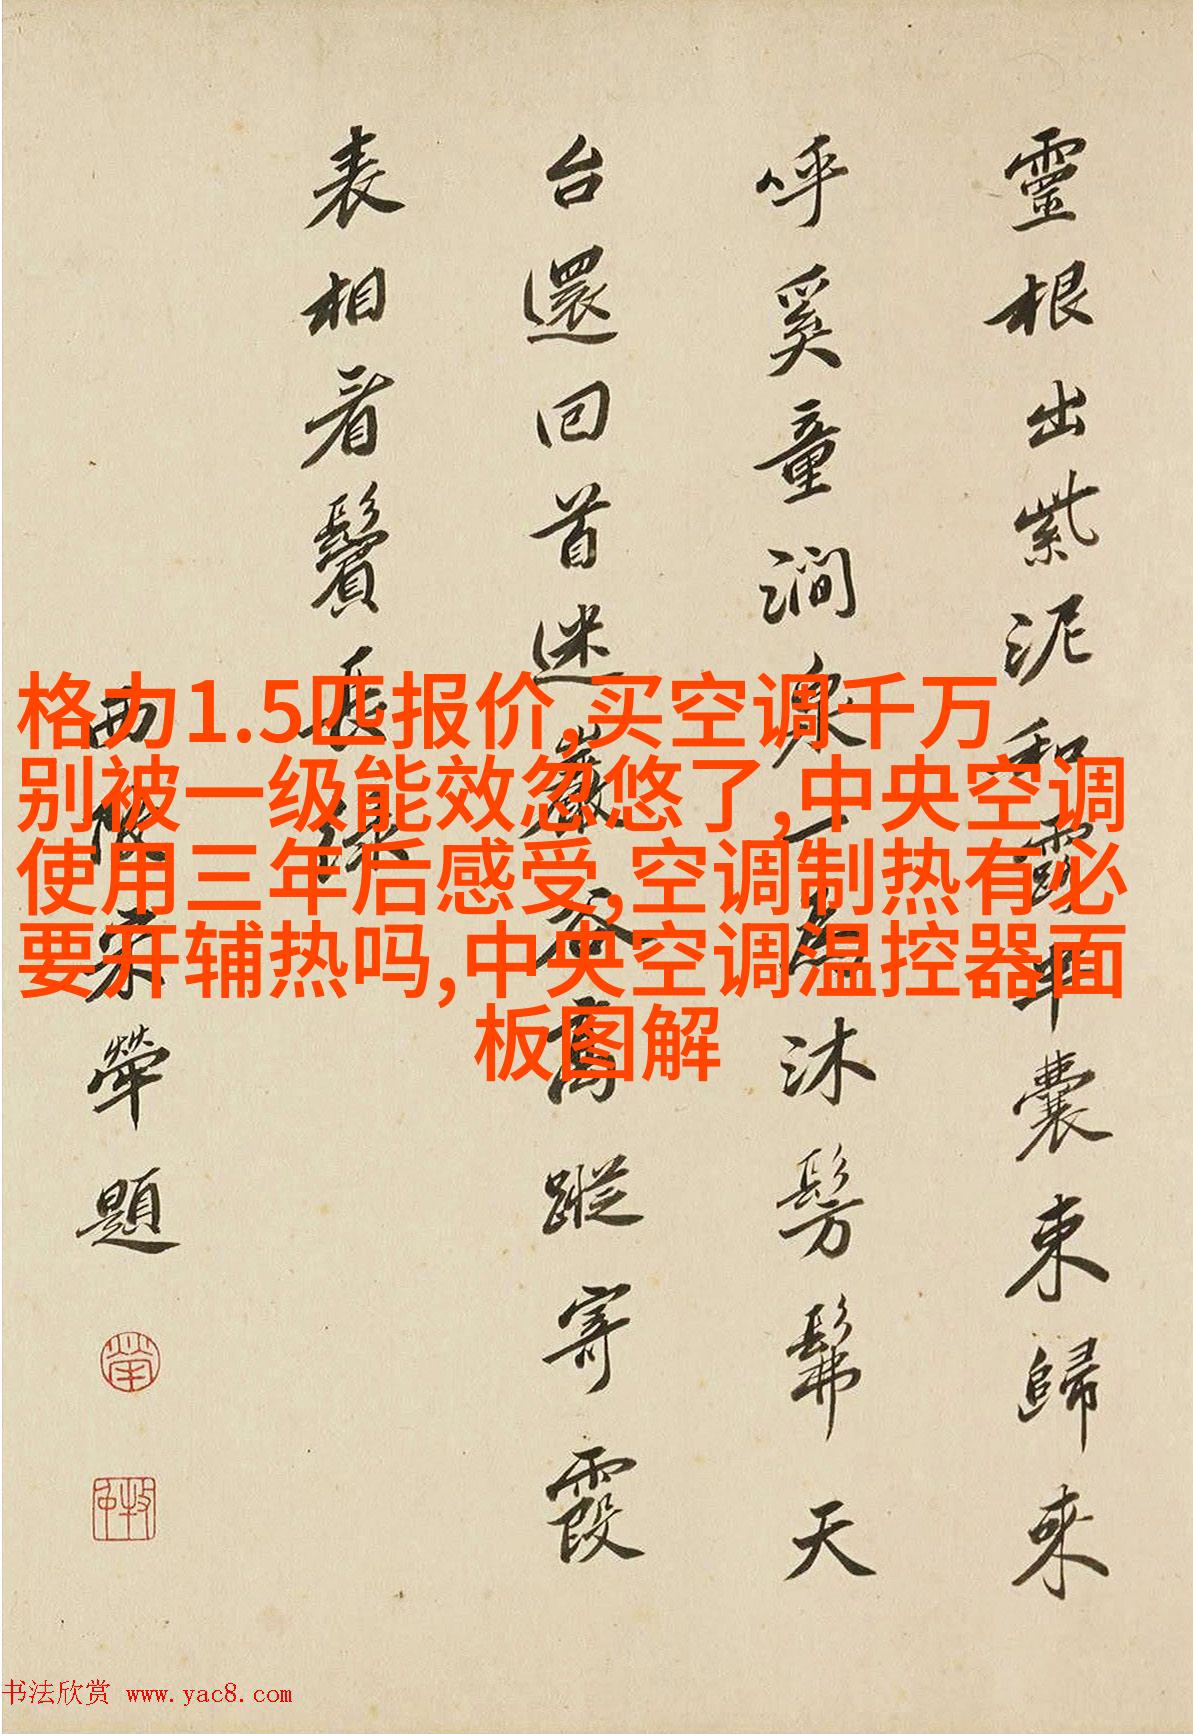 靈根出紫泥和露半囊束歸来
呼奚童澗泉一為沐髣髴天
台還回首迷巖谷高蹤寄霞
表相看鬢長绿
西陂宋犖題
格力1.5匹报价,买空调千万
别被一级能效忽悠了,中央空调
使用三年后感受,空调制热有必
要开辅热吗,中央空调温控器面
板图解
犖
书法欣赏 www.yac8.com